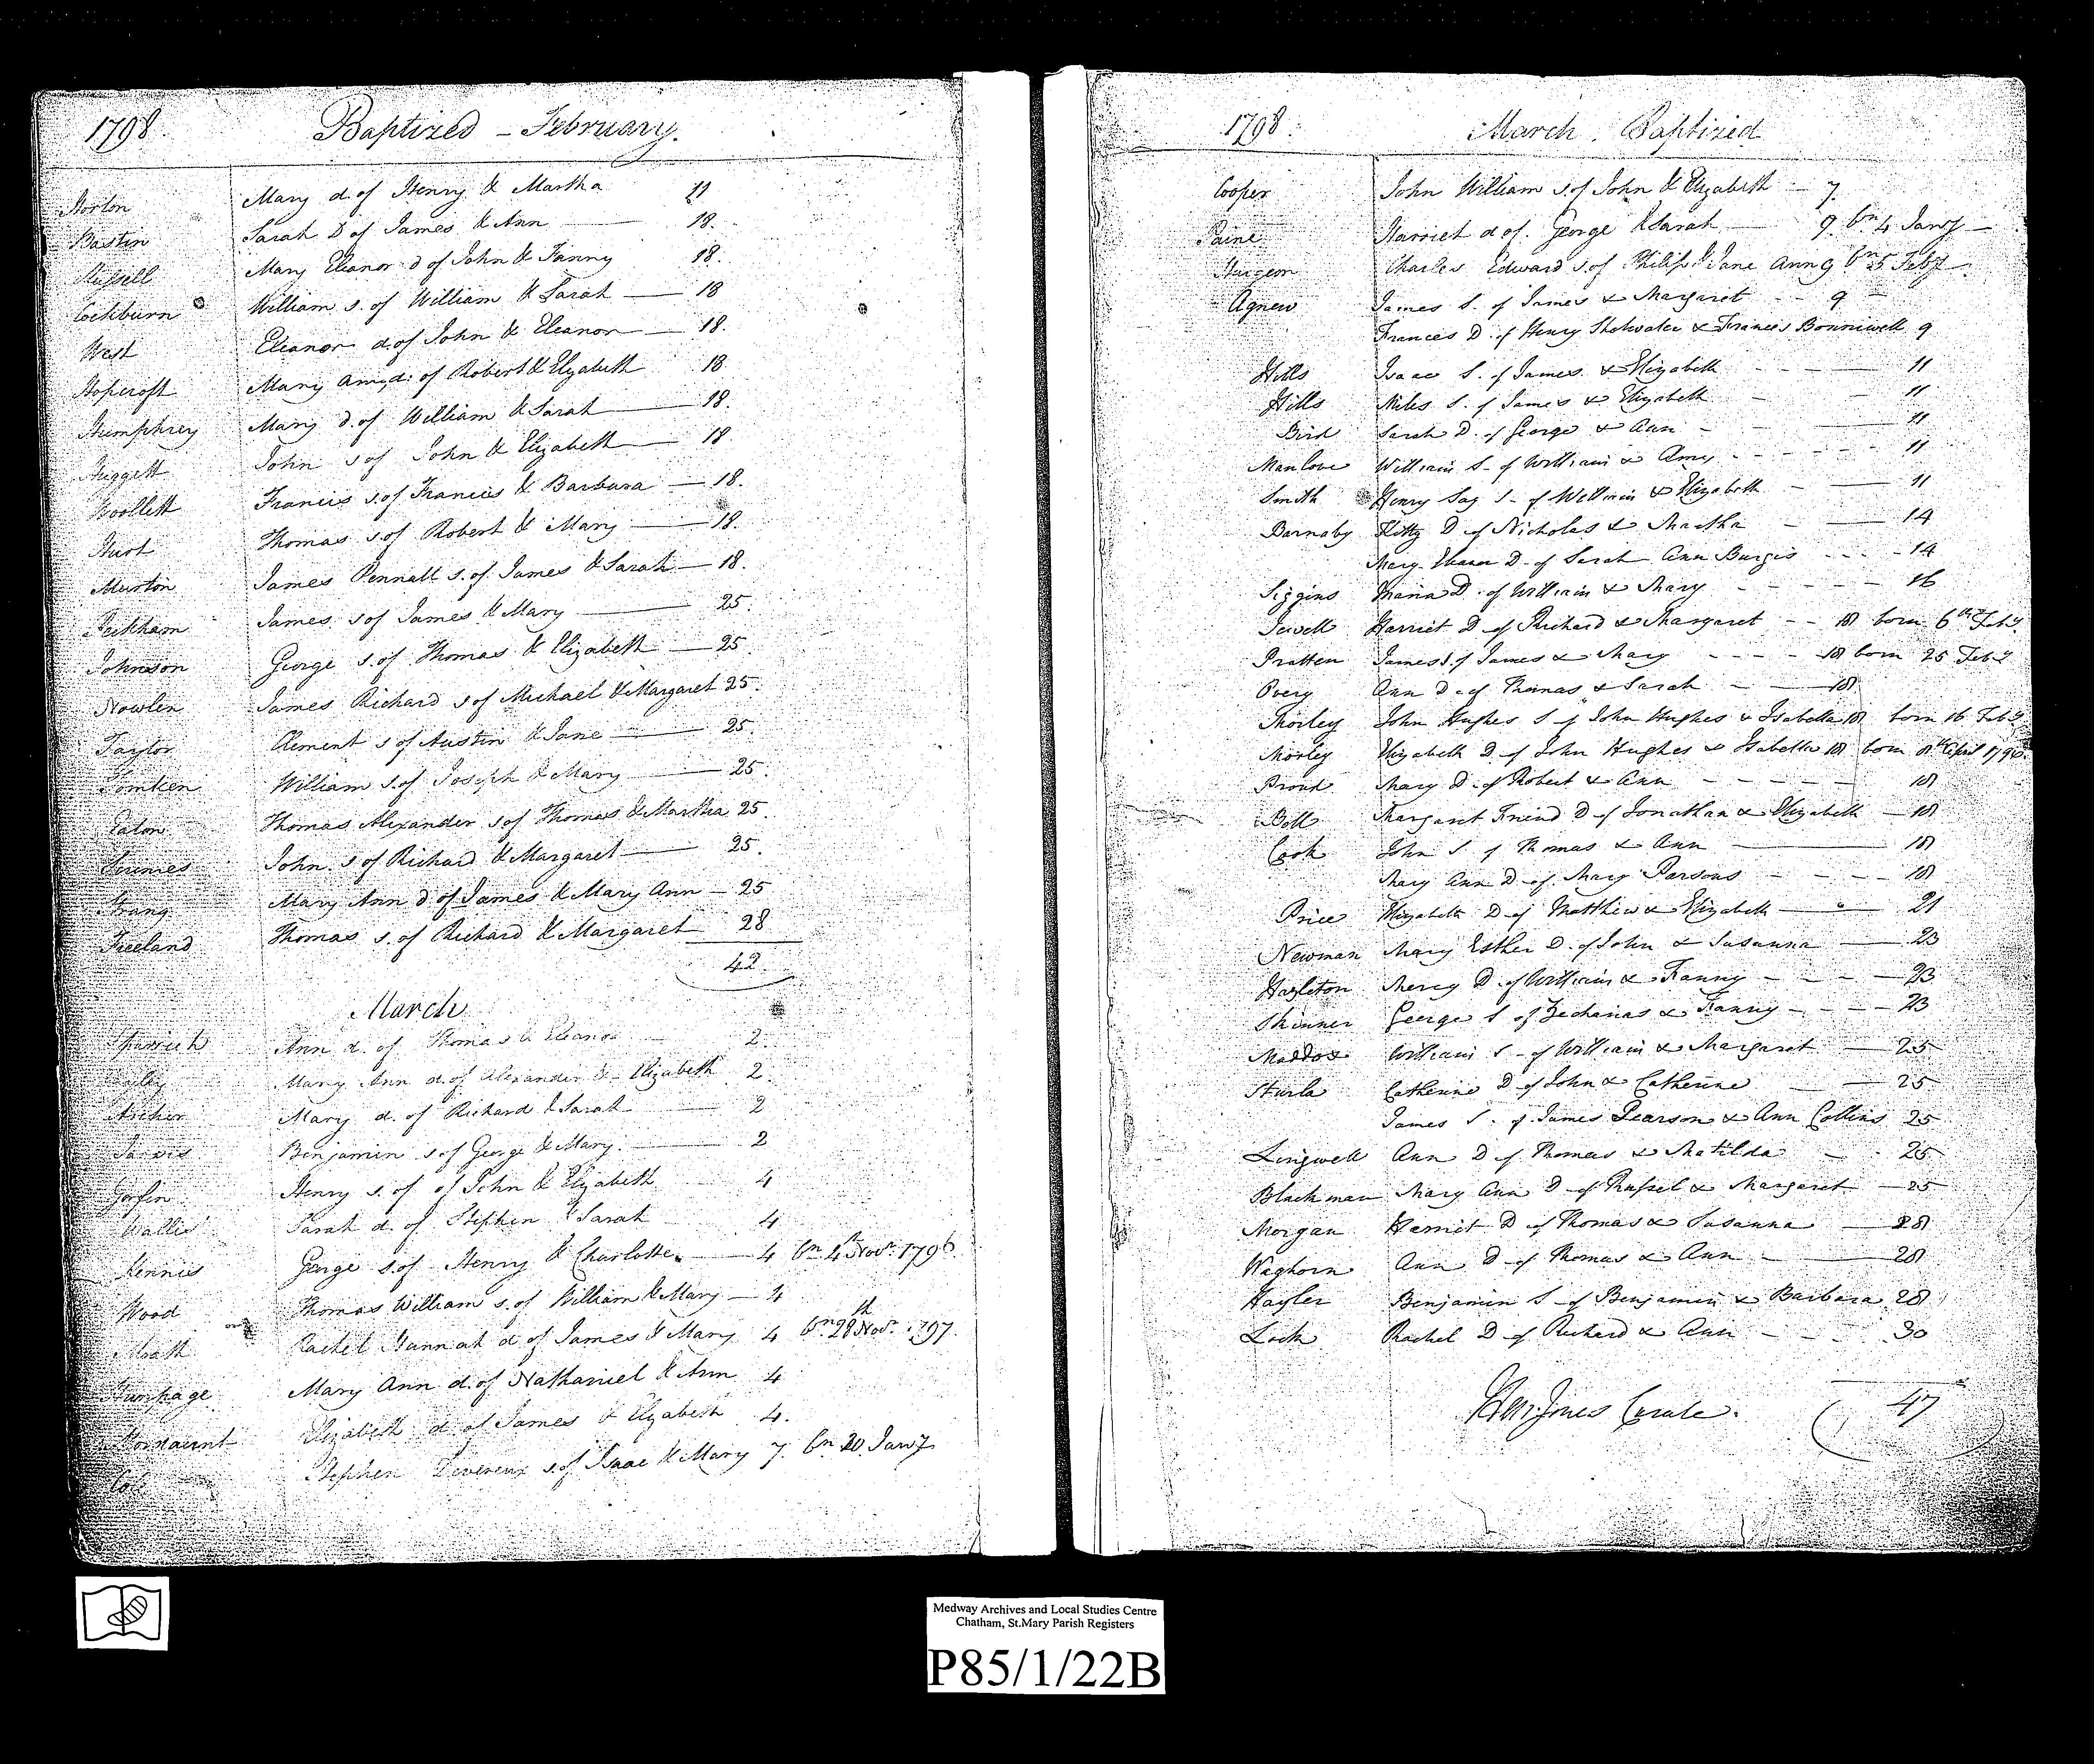 1798. Baptized - February.
Horton Mary d. of Henry & Martha 11
Bastin Sarah D of James & Ann 18.
Russell Mary Eleanor d of John & Fanny 18.
Cockburn William s. of William & Sarah 18
West Eleanor d. of John & Eleanor 18.
Hopcroft Mary Amy d. of Robert & Elizabeth 18
Humphrey Mary d. of William & Sarah 18.
John s of John & Elizabeth 18
Woollett Francis s. of Francis & Barbara 18.
Hurt Thomas s. of Robert & Mary 18.
Murton James Pennall s. of James & Sarah 18.
Peckham James s of James & Mary 25.
Johnson George s. of Thomas & Elizabeth 25
Nowlen James Richard s of Michael & Margaret 25.
Taylor Clement s of Austin & Jane 25.
Tomken William s. of Joseph & Mary 25.
Eaton Thomas Alexander s of Thomas & Martha 25.
John s of Richard & Margaret 25.
Strang Mary Ann d of James & Mary Ann 25
Freeland Thomas s. of Richard & Margaret 28
42
March
Ann d. of Thomas & Eleanor 2.
Mary Ann d. of Alexander & Elizabeth 2.
Archer Mary d. of Richard & Sarah 2
Jarvis Benjamin s of George & Mary. 2
Henry s. of of John & Elizabeth 4
Wallis Sarah d. of Stephen & Sarah 4
Kennis George s. of Henry & Charlotte. 4 bn 4th Novr 1796.
Wood Thomas William s. of William & Mary 4
Rachel Hannah d of James & Mary 4 bn 28th Novr 1797.
Turnpage Mary Ann d. of Nathaniel & Ann 4
Elizabeth d of James & Elizabeth 4.
Cole Stephen Devereux s. of Isaac & Mary 7. bn 20. Jany
1798. March. Baptized
Cooper John William s. of John & Elizabeth 7.
Paine Harriet d of. George & Sarah 9. bn 4 Jany
Sturgeon Charles Edward s. of Philip & Jane Ann 9 bn 5 Feby
Agnew James S. of James & Margaret 9
Frances D. of Henry & Frances Bonniwell 9
Hills Isaac S. of James & Elizabeth 11
Hills Miles S. of James & Elizabeth 11
Bird Sarah D. of George & Ann 11
Manlove William S. of William & Amy 11
Smith Henry S. of William & Elizabeth 11
Barnaby Kitty D of Nicholas & Martha 14
Mary Eleanor D. of Sarah Ann Burgis 14
Siggins Maria D. of William & Mary 16
Jewell Harriet D of Richard & Margaret 18 born 6th Feby
Pratten James S. of James & Mary 18 born 25 Feby
Overy Ann D. of Thomas & Sarah 18
Thorley John Hughes S of John Hughes & Isabella 18 born 16 Feby
Morley Elizabeth D of John Hughes & Isabella 18 born 8th April 1796.
Proud Mary D. of Robert & Ann 18
Bell Margaret Friend D of Jonathan & Elizabeth 18
Cook John S. of Thomas & Ann 18
Mary Ann D. of Mary Parsons 18
Price Elizabeth D of Matthew & Elizabeth 21
Newman Mary Esther D. of John & Susanna 23
Hazleton Mercy D. of William & Fanny 23
Skinner George S of Zecharias & Fanny 23
Maddox William S. of William & Margaret 25
Sturla Catherine D of John & Catherine 25
James S. of James Pearson & Ann Collins 25
Lingwell Ann D of Thomas & Matilda 25
Blackman Mary Ann D of Russel & Margaret 25
Morgan Harriet D of Thomas & Susanna 28
Waghorn Ann D of Thomas & Ann 28
Hayler Benjamin S of Benjamin & Barbara 28
Lock Rachel D of Richard & Ann 30
Jones Curate. 47
Medway Archives and Local Studies Centre
Chatham, St.Mary Parish Registers
P85/1/22B